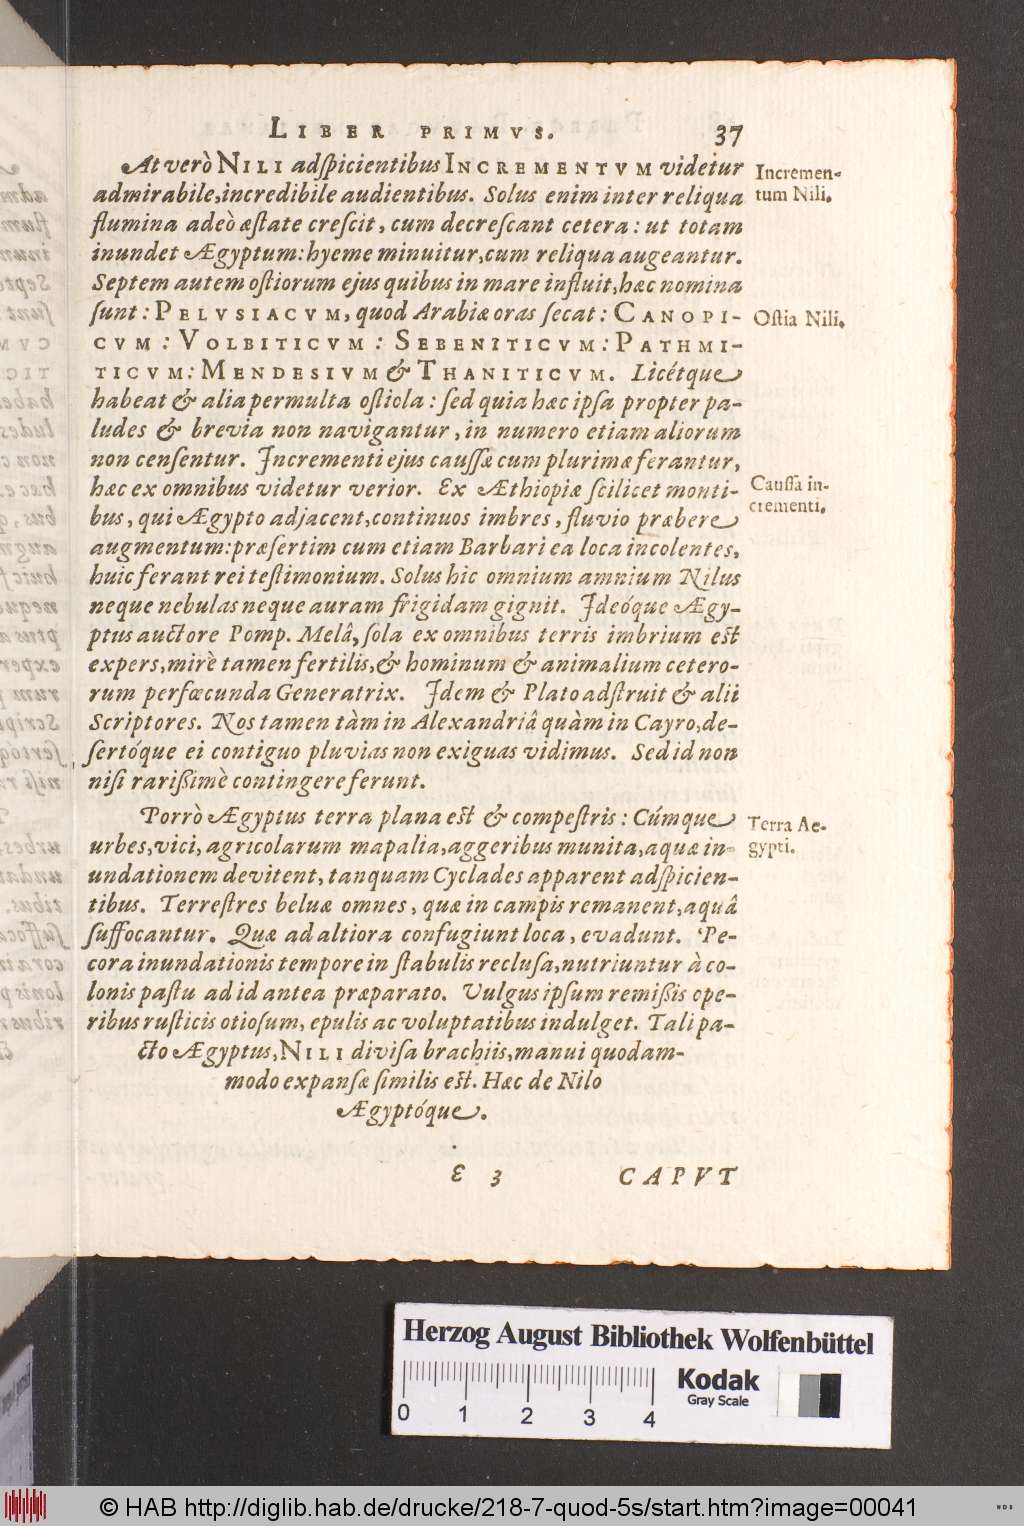 LIBER PRIMVS. 37
At verò NILI adspicientibus INCREMENTVM videtur
admirabile, incredibile audientibus. Solus enim inter reliqua
flumina adeò æstate crescit, cum decrescant cetera: ut totam
inundet Ægyptum: hyeme minuitur, cum reliqua augeantur.
Septem autem ostiorum ejus quibus in mare influit, hæc nomina
sunt: PELVSIACVM, quod Arabiæ oras secat: CANOPI-
CVM: VOLBITICVM: SEBENITICVM: PATHMI-
TICVM: MENDESIVM & THANITICVM. Licétque
habeat & alia permulta ostiola: sed quia hæc ipsa propter pa-
ludes & brevia non navigantur, in numero etiam aliorum
non censentur. Incrementi ejus caussæ cum plurimæ ferantur,
hæc ex omnibus videtur verior. Ex Æthiopiæ scilicet monti-
bus, qui Ægypto adjacent, continuos imbres, fluvio præbere
augmentum: præsertim cum etiam Barbari ea loca incolentes,
huic ferant rei testimonium. Solus hic omnium amnium Nilus
neque nebulas neque auram frigidam gignit. Ideóque Ægy-
ptus auctore Pomp. Melâ, sola ex omnibus terris imbrium est
expers, mirè tamen fertilis, & hominum & animalium cetero-
rum perfœcunda Generatrix. Idem & Plato adstruit & alii
Scriptores. Nos tamen tàm in Alexandriâ quàm in Cayro, de-
sertóque ei contiguo pluvias non exiguas vidimus. Sed id non
nisi rarißimè contingere ferunt.
Porrò Ægyptus terra plana est & compestris: Cúmque
urbes, vici, agricolarum mapalia, aggeribus munita, aquæ in-
undationem devitent, tanquam Cyclades apparent adspicien-
tibus. Terrestres beluæ omnes, quæ in campis remanent, aquâ
suffocantur. Quæ ad altiora confugiunt loca, evadunt. Pe-
cora inundationis tempore in stabulis reclusa, nutriuntur à co-
lonis pastu ad id antea præparato. Vulgus ipsum remißis ope-
ribus rusticis otiosum, epulis ac voluptatibus indulget. Tali pa-
cto Ægyptus, NILI divisa brachiis, manui quodam-
modo expansæ similis est. Hæc de Nilo
Ægyptóque.
E 3 CAPVT
Incremen-
tum Nili.
Ostia Nili.
Caussa in-
crementi.
Terra Ae-
gypti.
Herzog August Bibliothek Wolfenbüttel
0 1 2 3 4
Kodak
Gray Scale
© HAB http://diglib.hab.de/drucke/218-7-quod-5s/start.htm?image=00041